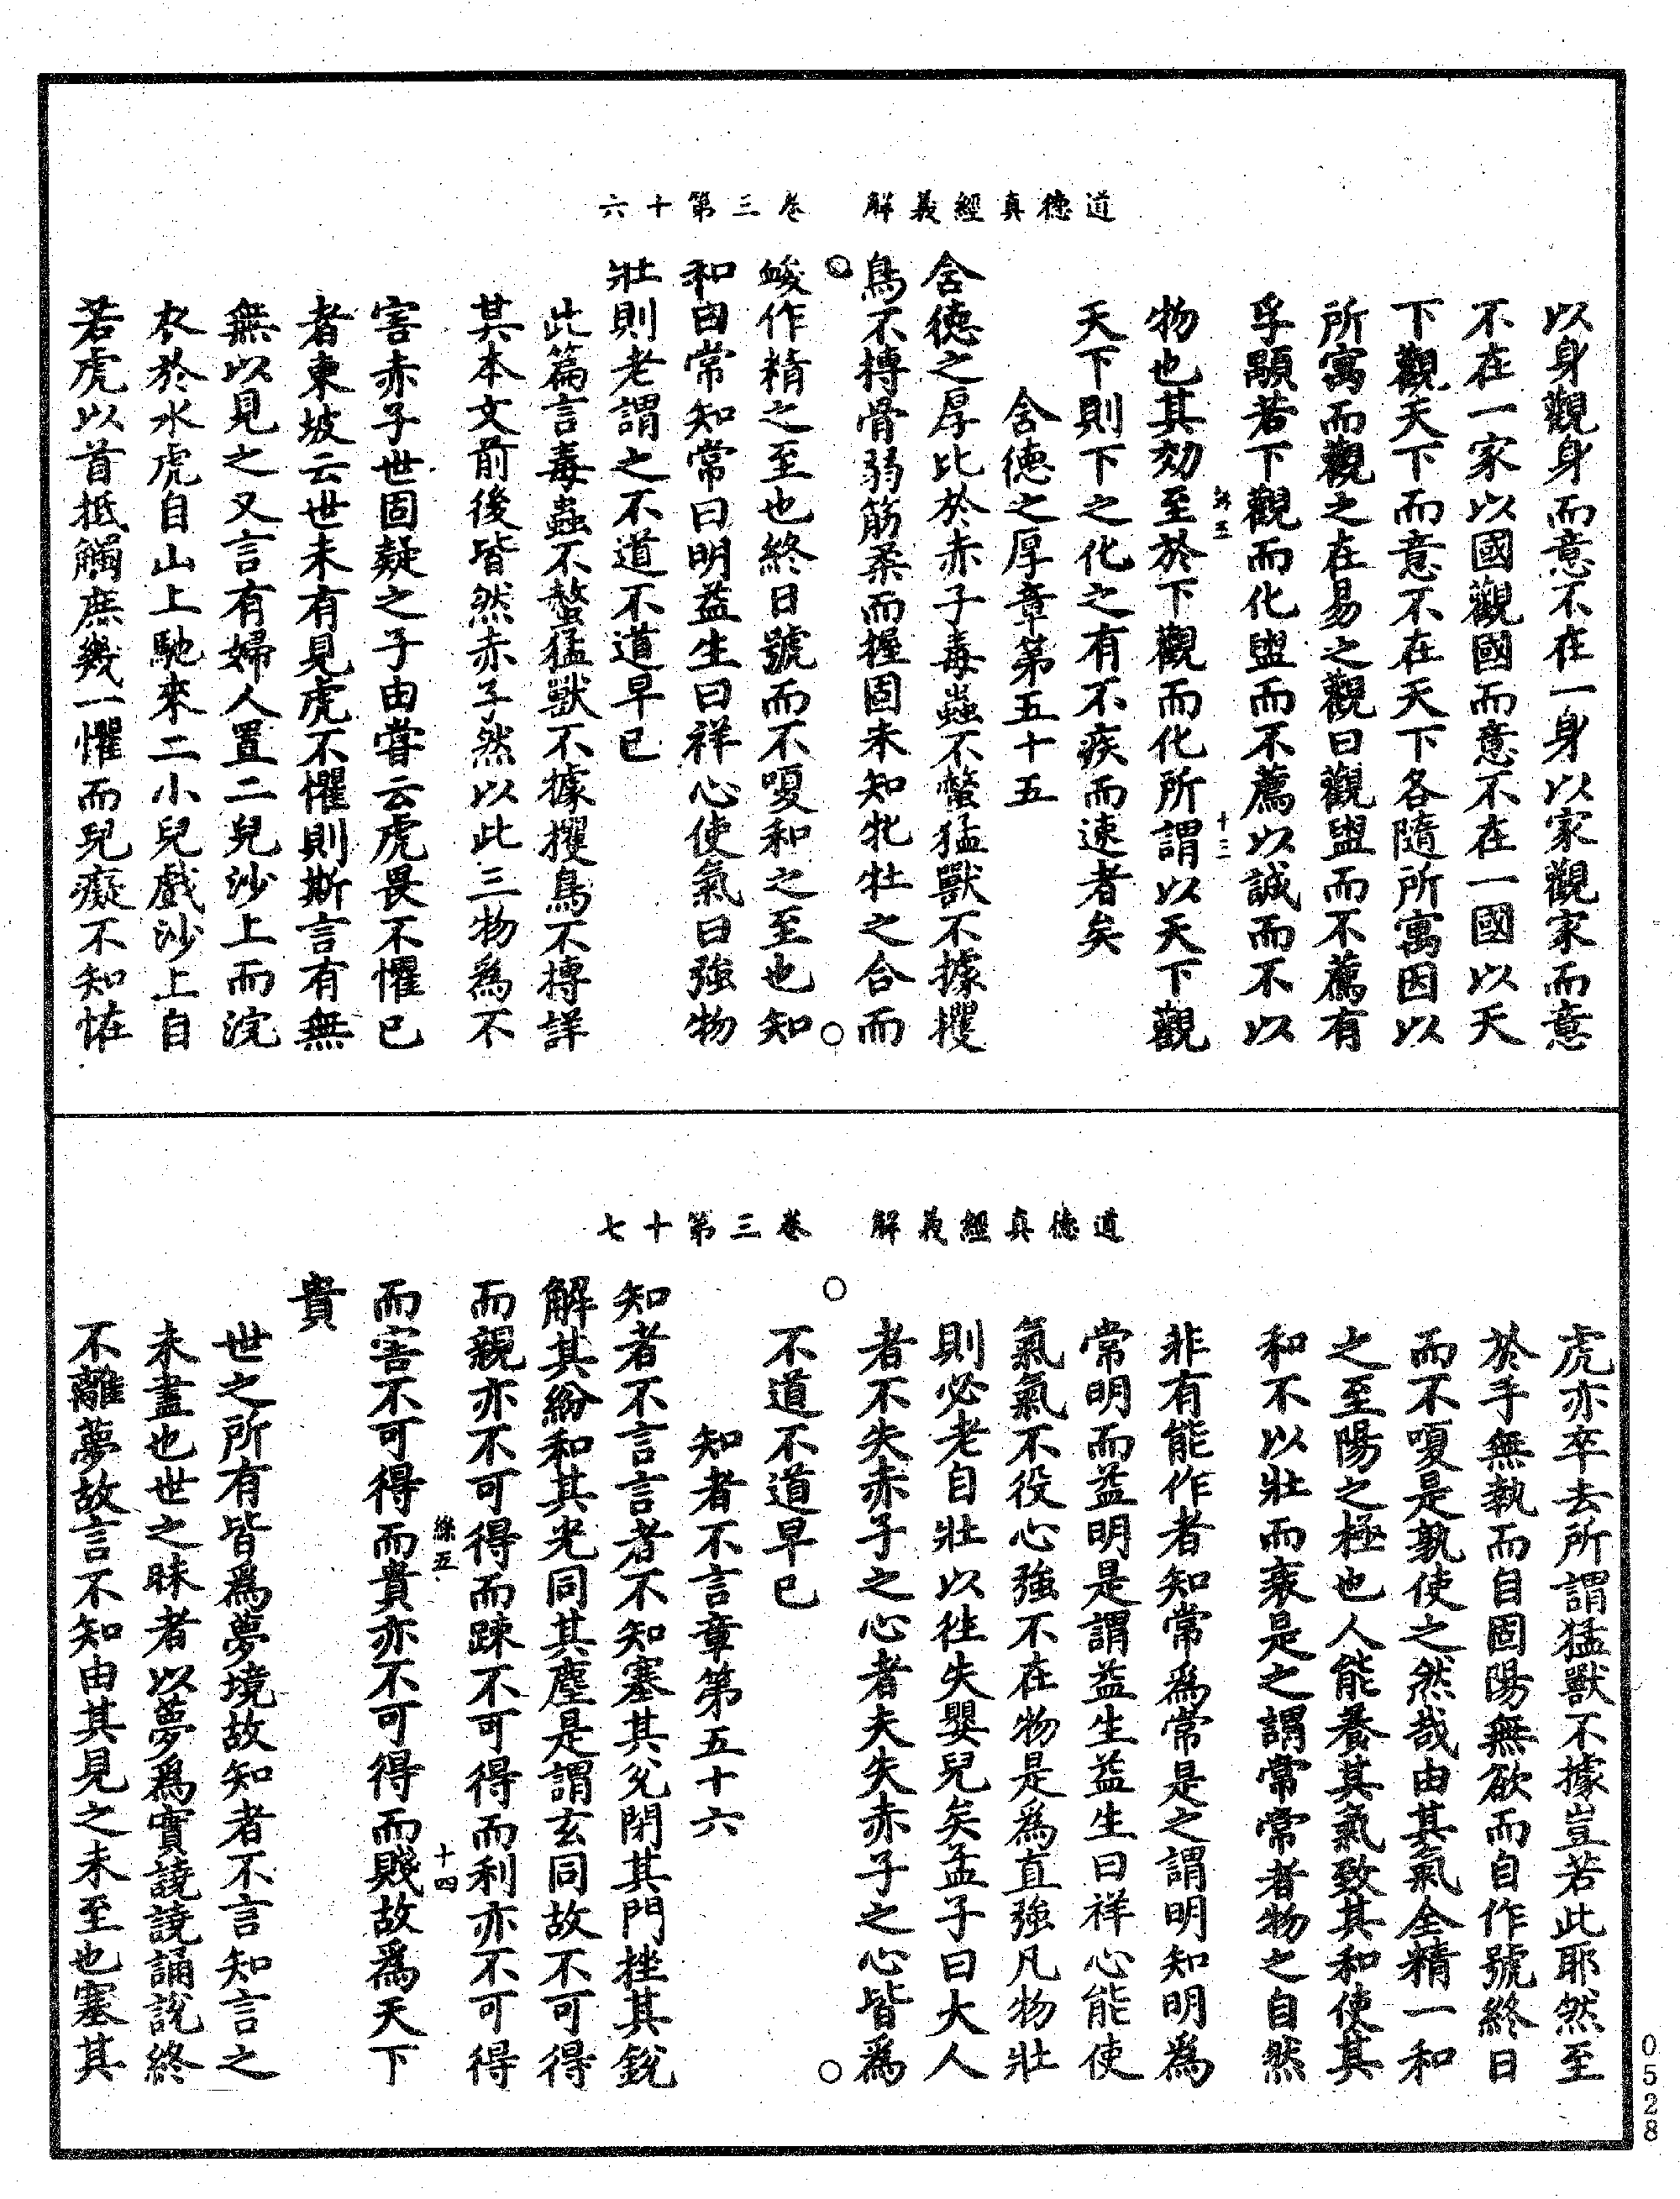 道德真經義解　卷三第十六
以身觀身而意不在一身以家觀家而意
不在一家以國觀國而意不在一國以天
下觀天下而意不在天下各隨所寓因以
所寓而觀之在易之觀曰觀盥而不薦有
孚顒若下觀而化盥而不薦以誠而不以
物也其効至於下觀而化所謂以天下觀
天下則下之化之有不疾而速者矣
含德之厚章第五十五
含德之厚比於赤子毒蟲不螫猛獸不據攫
鳥不搏骨弱筋柔而握固未知牝牡之合而
峻作精之至也終日號而不嗄和之至也知
和曰常知常曰明益生曰祥心使氣曰強物
壯則老謂之不道不道早已
此篇言毒蟲不螫猛獸不據攫鳥不搏詳
其本文前後皆然赤子然以此三物為不
害赤子世固疑之子由嘗云虎畏不懼已
者東坡云世未有見虎不懼則斯言有無
無以見之又言有婦人置二兒沙上而浣
衣於水虎自山上馳來二小兒戲沙上自
若虎以首抵觸庶幾一懼而兒癡不知恠
道德真經義解　卷三第十七
虎亦卒去所謂猛獸不據豈若此耶然至
於手無執而自固陽無欲而自作號終日
而不嗄是孰使之然哉由其氣全精一和
之至陽之極也人能養其氣致其和使其
和不以壯而衰是之謂常常者物之自然
非有能作者知常為常是之謂明知明為
常明而益明是謂益生益生曰祥心能使
氣氣不役心強不在物是為直強凡物壯
則必老自壯以徃失嬰兒矣孟子曰大人
者不失赤子之心者夫失赤子之心皆為
不道不道早已
知者不言章第五十六
知者不言言者不知塞其兌閉其門挫其銳
解其紛和其光同其塵是謂玄同故不可得
而親亦不可得而踈不可得而利亦不可得
絲五　十四
而害不可得而貴亦不可得而賤故為天下
貴
世之所有皆為夢境故知者不言知言之
未盡也世之昧者以夢為實譊譊誦說終
不離夢故言不知由其見之未至也塞其
0528